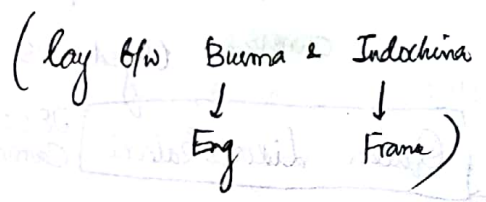 (lay b/w Burma & Indochina
↓ ↓
Eng Franc)